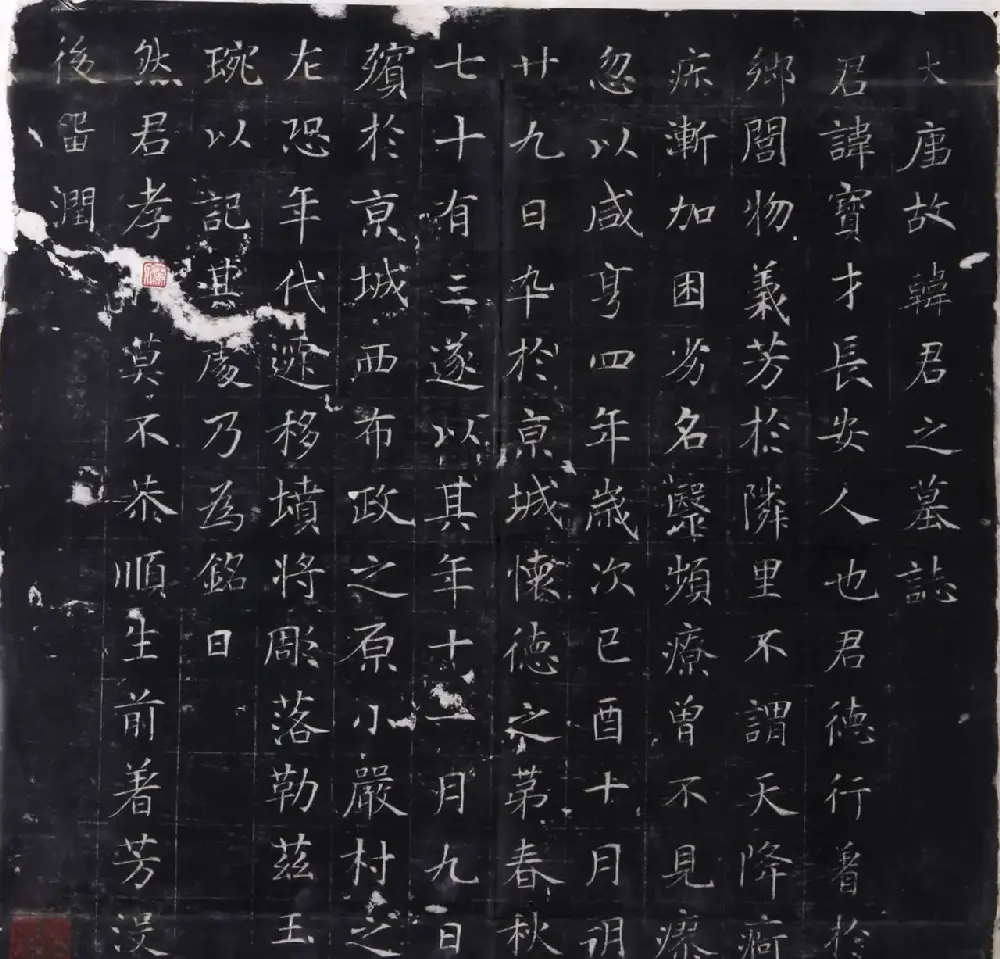 大唐故韓君之墓誌
君諱寶才長安人也君德行著於
鄉閭物義芳於隣里不謂天降痾
疢漸加困劣名醫頻療曾不見瘳
忽以咸亨四年歲次己酉十月朔
廿九日卒於京城懷德之第春秋
七十有三遂以其年十一月九日
殯於京城西布政之原小嚴村之
左恐年代遞移墳將彫落勒茲玉
琬以記其處乃為銘曰
然君孝莫不恭順生前著芳没
後留潤